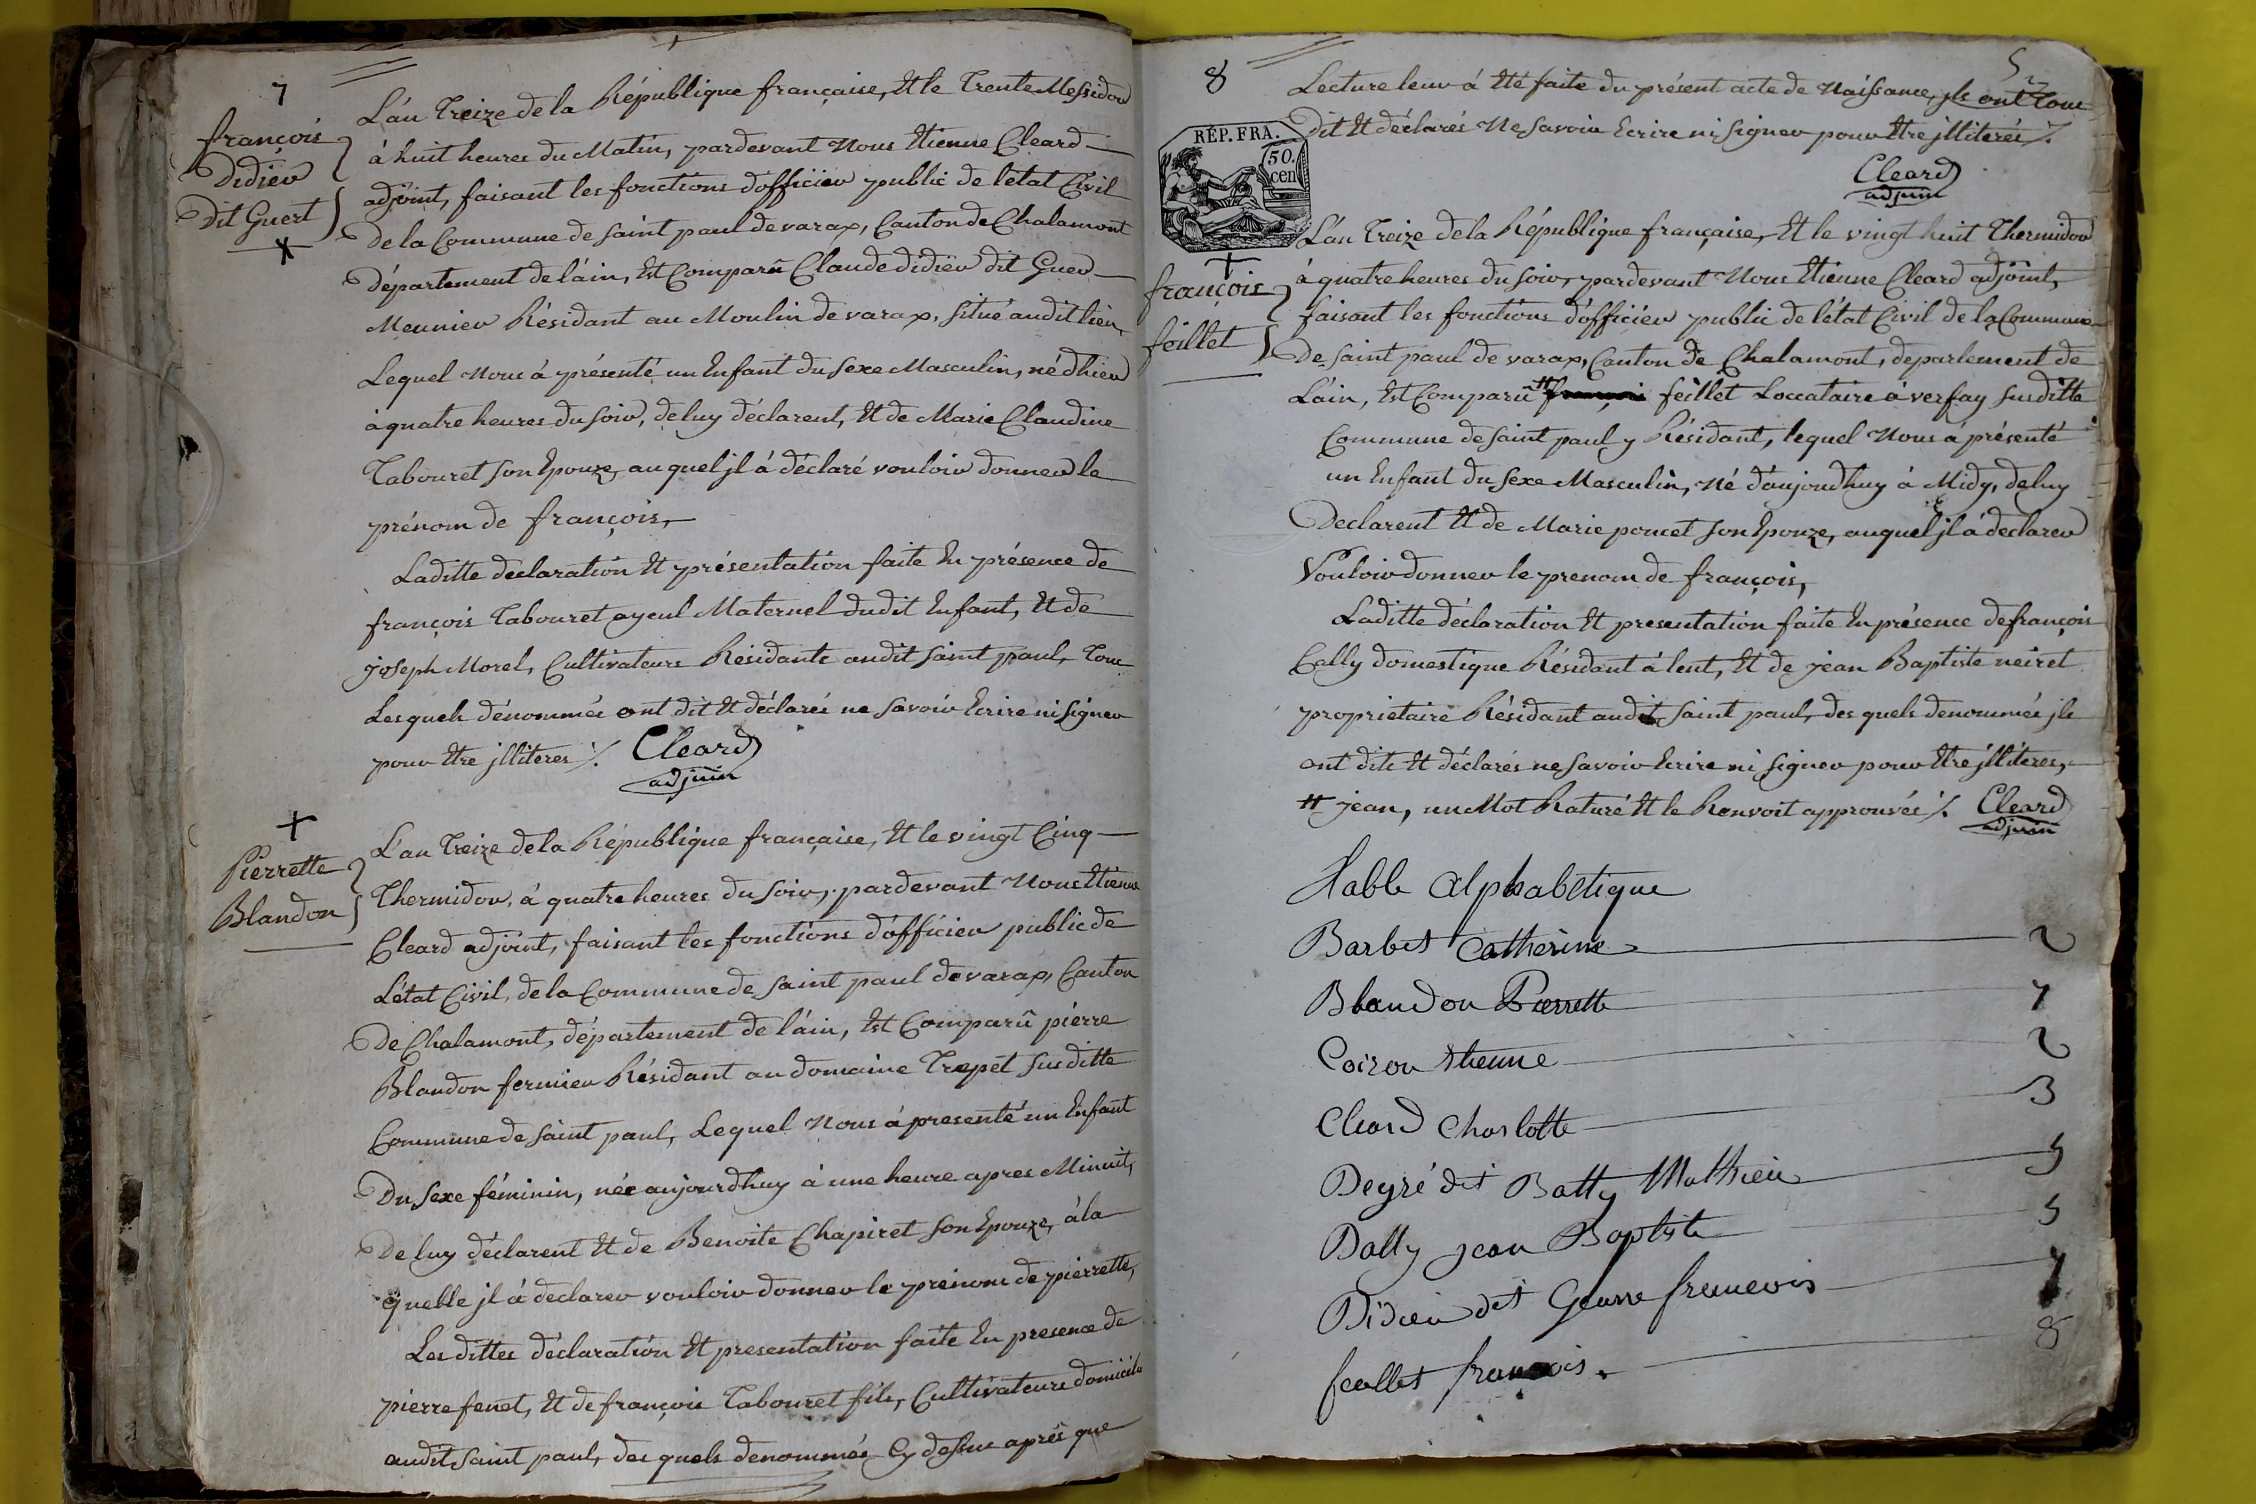 7
françois
Didiëv
Dit Guert
L'an Treize de la République française, Et le Trente Messidor
à huit heures du Matin, pardevant Nous Etienne Cleard
adjöint, faisant les fonctions d'officier public de l'état Civil
De la Commune de saint paul de varax, Canton de Chalamont
Département de l'ain, Est Comparû Claude didiëv dit Guer
Meunier Résidant au Moulin de varax, situé audit lieu,
Lequel Nous à présenté un Enfant du sexe Masculin, né d'hier
à quatre heures du soir, de luy déclarent, Et de Marie Claudine
Tabouret son Epouze, auquel jl à déclaré vouloir donner le
prénom de françois,
Laditte declaration Et présentation faite En présence de
françois Tabouret ayeul Maternel dudit Enfant, Et de
joseph Morel, Cultivateurs Résidants audit saint paul, Tous
Lesquels dénommés ont dit Et déclarés ne savoir Ecrire ni signer
pour Etre jlliteres ./. Cleard
adjoin
Pierrette
Blandon
L'an Treize de la République française, Et le vingt Cinq
Thermidor, à quatre heures du soir, pardevant Nous Etienne
Cleard adjöint, faisant les fonctions d'officier public de
L'état Civil, de la Commune de saint paul de varax, Canton
De Chalamont, département de l'ain, Est Comparû pierre
Blandon fermier Résidant au domaine Trepet susditte
Commune de saint paul, Lequel Nous à presenté un Enfant
Du sexe féminin, née aujourdhuy à une heure apres Minuit,
De luy déclarent Et de Benoite Chapiret son Epouze, à la
quelle jl à declarer vouloir donner le prenom de pierrette,
Les dittes déclaration Et presentation faite En presence de
pierre fenet, Et de françois Tabouret fils, Cultivateurs domicile
audit saint paul, des quels denommés Cy dessus après que
8
5
Lecture leur à Eté faite du présent acte de Naissance, jls ont Tous
dit Et déclarés Ne savoir Ecrire ni signer pour Etre jlliterés ./.
Cleard
adjoin
RÉP. FRA.
50.
cen
françois
feillet
L'an Treize de la République française, Et le vingt huit Thermidor
à quatre heures du soir, pardevant Nous Etienne Cleard adjöint,
faisant les fonctions d'officier public de l'état Civil de la Commune
De saint paul de varax, Canton de Chalamont, departement de
L'ain, Est Comparû # françois feillet Loccataire à versay susditte
Commune de saint paul y Résidant, lequel Nous à présenté
un Enfant du sexe Masculin, Né d'aujourdhuy à Midy, de luy
Declarent Et de Marie poncet son Epouze, auquel jl à declarer
Vouloir donner le prenom de françois,
Laditte déclaration Et presentation faite En présence de françois
Cally domestique Résidant à lent, Et de jean Baptiste neiret
proprietaire Résidant audit saint paul, des quels denommés jls
ont dits Et déclarés ne savoir Ecrire ni signer pour Etre jlliteres,
# jean, un Mot Raturé Et le Renvoit approuvés ./. Cleard
adjoin
Table Alphabetique
Barbet Catherine 2
Blandon Pierrette 7
Coiron Etienne 2
Cleard Charlotte 3
Degré dit Batty Mathieu 5
Dally jean Baptiste 5
Didieu dit Guerre francois 7
feillet francois. 8